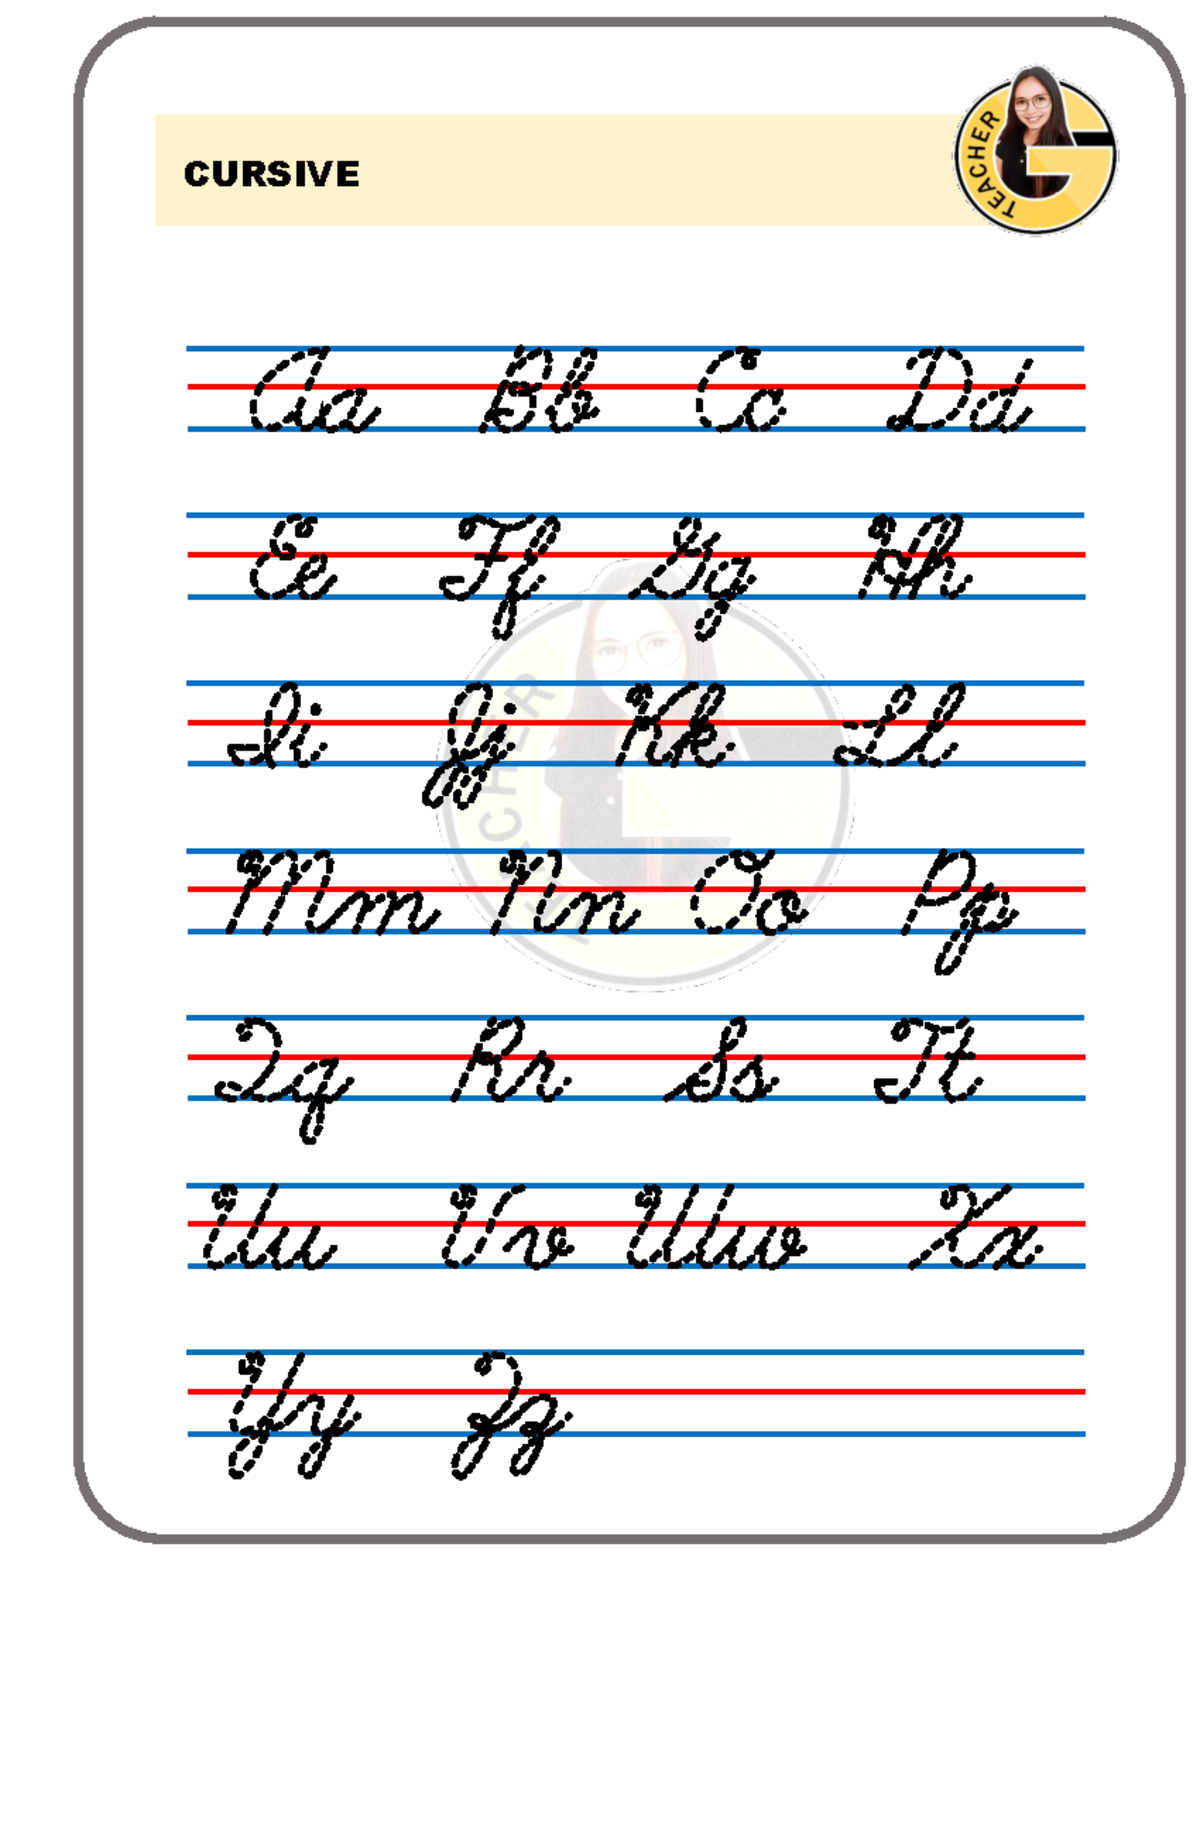 CURSIVE
TEACHER G
Aa Bb Cc Dd
Ee Ff Gg Hh
Ii Jj Kk Ll
Mm Nn Oo Pp
Qq Rr Ss Tt
Uu Vv Ww Xx
Yy Zz
TEACHER G